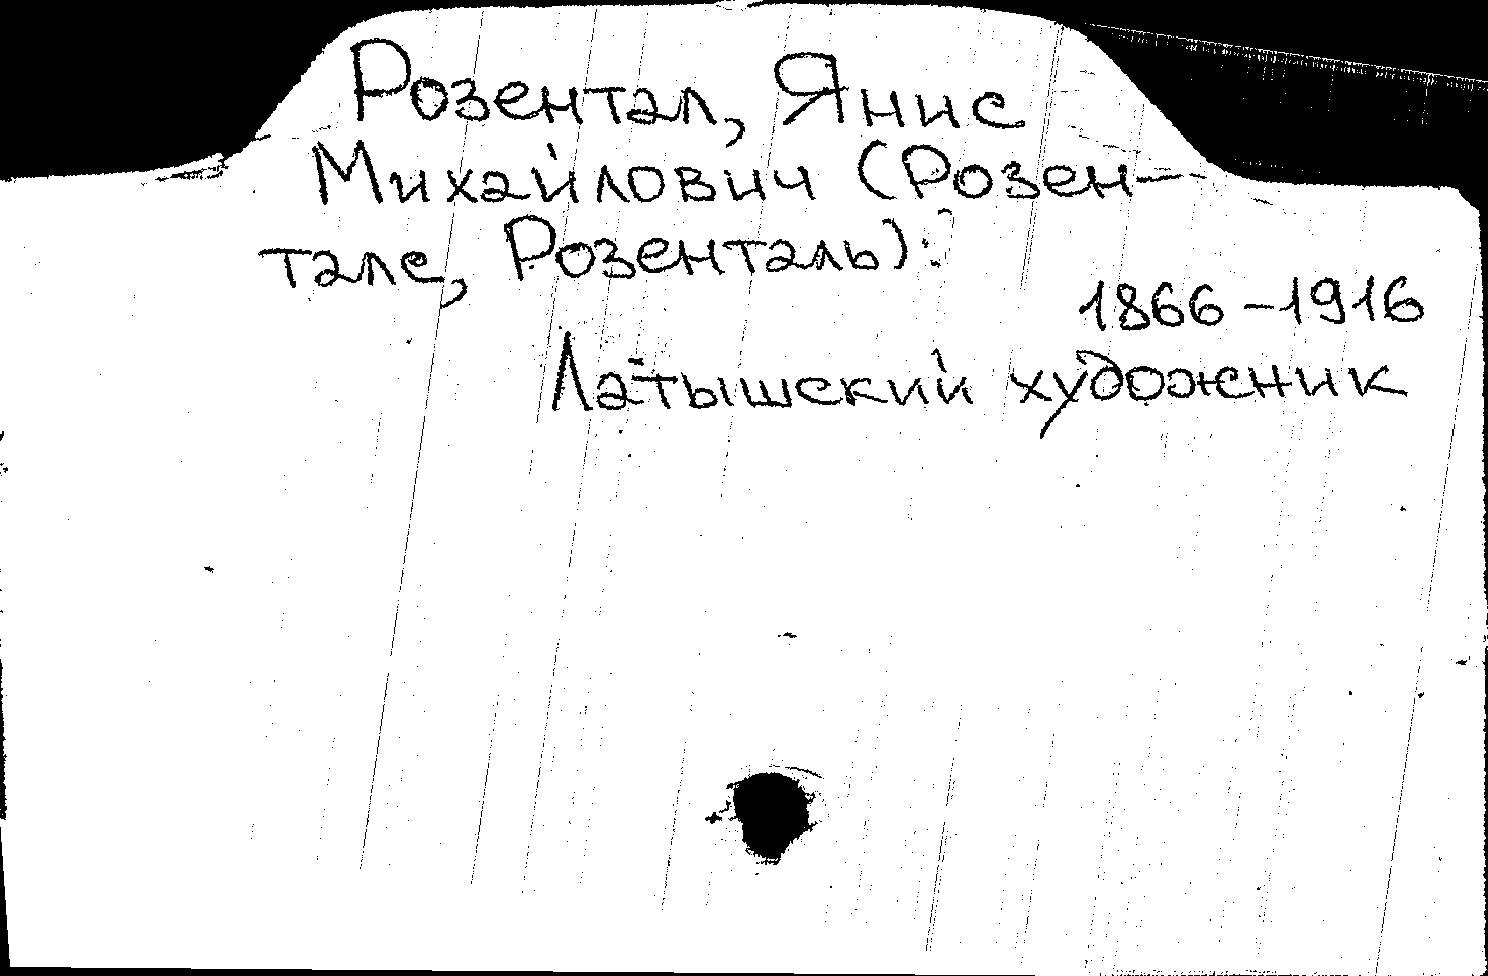 Розентал, Янис
Михайлович (Розен-
тале, Розенталь):
1866-1916
Латышский художник